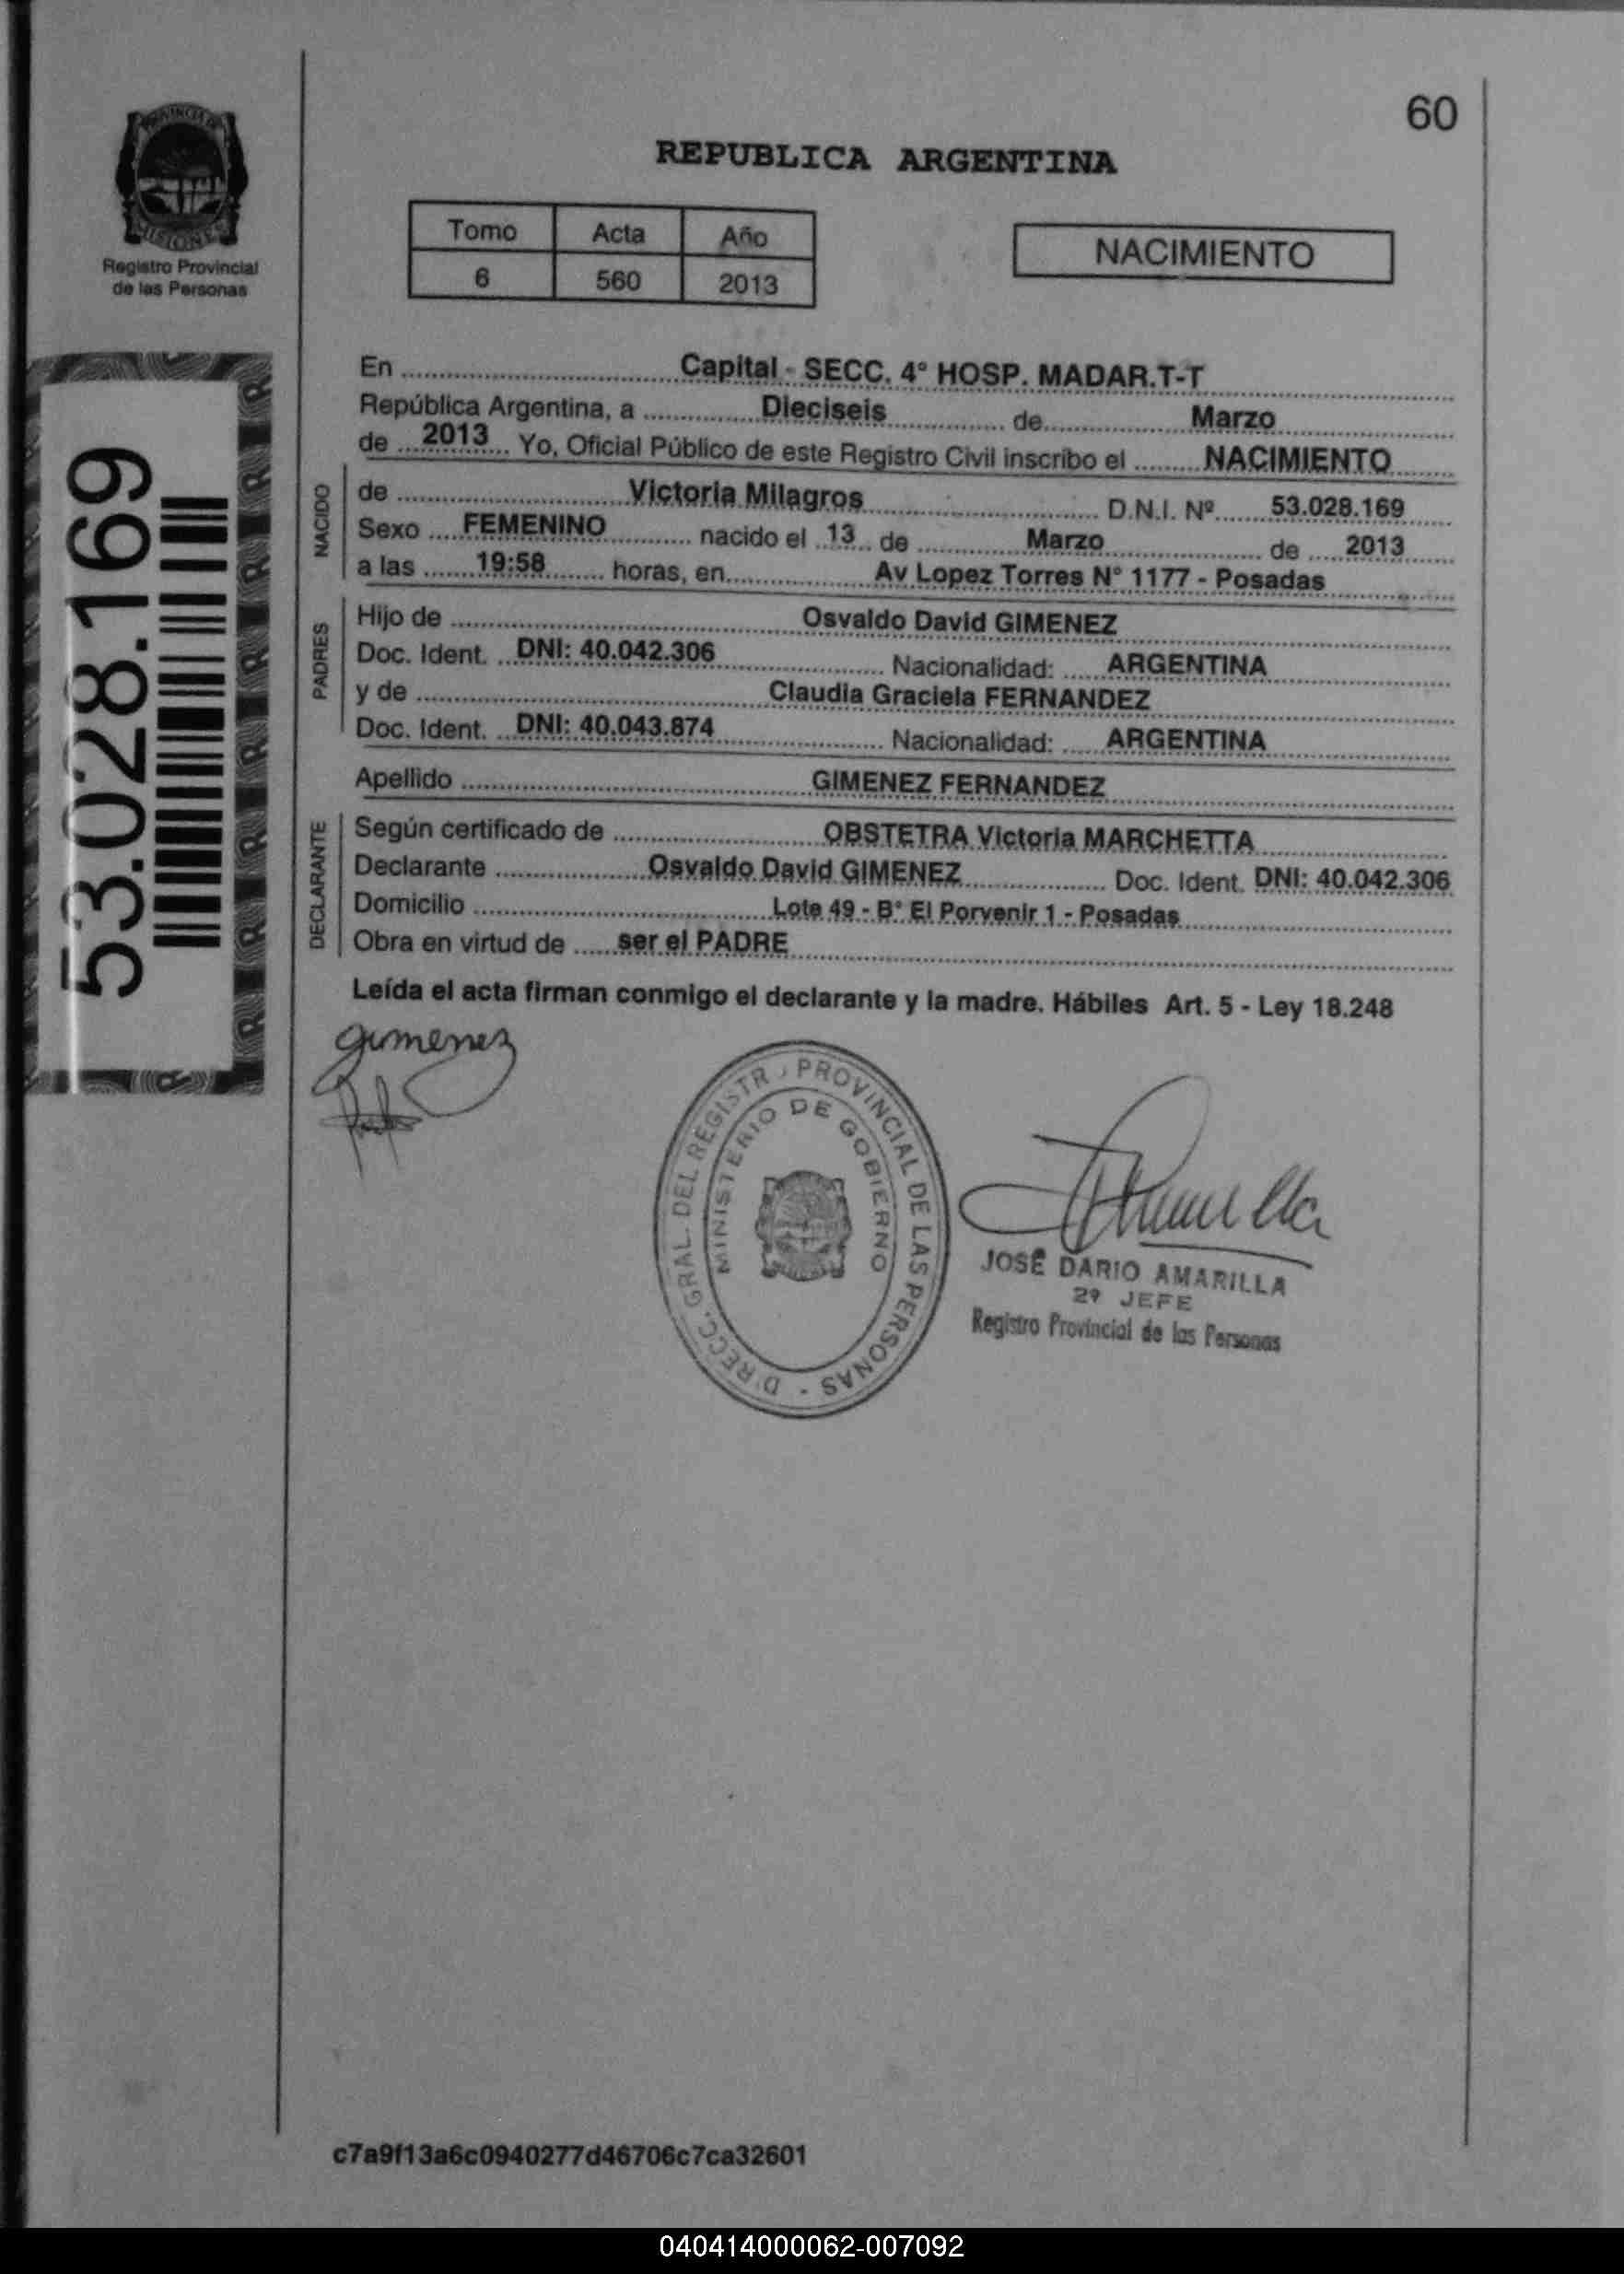 60
PROVINCIA DE
MISIONES
Registro Provincial
de las Personas
REPUBLICA ARGENTINA
Tomo Acta Año
6 560 2013
NACIMIENTO
53.028.169
En Capital - SECC. 4° HOSP. MADAR.T-T
República Argentina, a Dieciseis de Marzo
de 2013 Yo, Oficial Público de este Registro Civil inscribo el NACIMIENTO
NACIDO
de Victoria Milagros D.N.I. Nº 53.028.169
Sexo FEMENINO nacido el 13 de Marzo de 2013
a las 19:58 horas, en Av Lopez Torres N° 1177 - Posadas
PADRES
Hijo de Osvaldo David GIMENEZ
Doc. Ident. DNI: 40.042.306 Nacionalidad: ARGENTINA
y de Claudia Graciela FERNANDEZ
Doc. Ident. DNI: 40.043.874 Nacionalidad: ARGENTINA
Apellido GIMENEZ FERNANDEZ
DECLARANTE
Según certificado de OBSTETRA Victoria MARCHETTA
Declarante Osvaldo David GIMENEZ Doc. Ident. DNI: 40.042.306
Domicilio Lote 49 - B° El Porvenir 1 - Posadas
Obra en virtud de ser el PADRE
Leída el acta firman conmigo el declarante y la madre. Hábiles Art. 5 - Ley 18.248
gimenez
DIRECC. GRAL. DEL REGISTRO PROVINCIAL DE LAS PERSONAS -
MINISTERIO DE GOBIERNO
JOSÉ DARIO AMARILLA
2º JEFE
Registro Provincial de las Personas
c7a9f13a6c0940277d46706c7ca32601
040414000062-007092